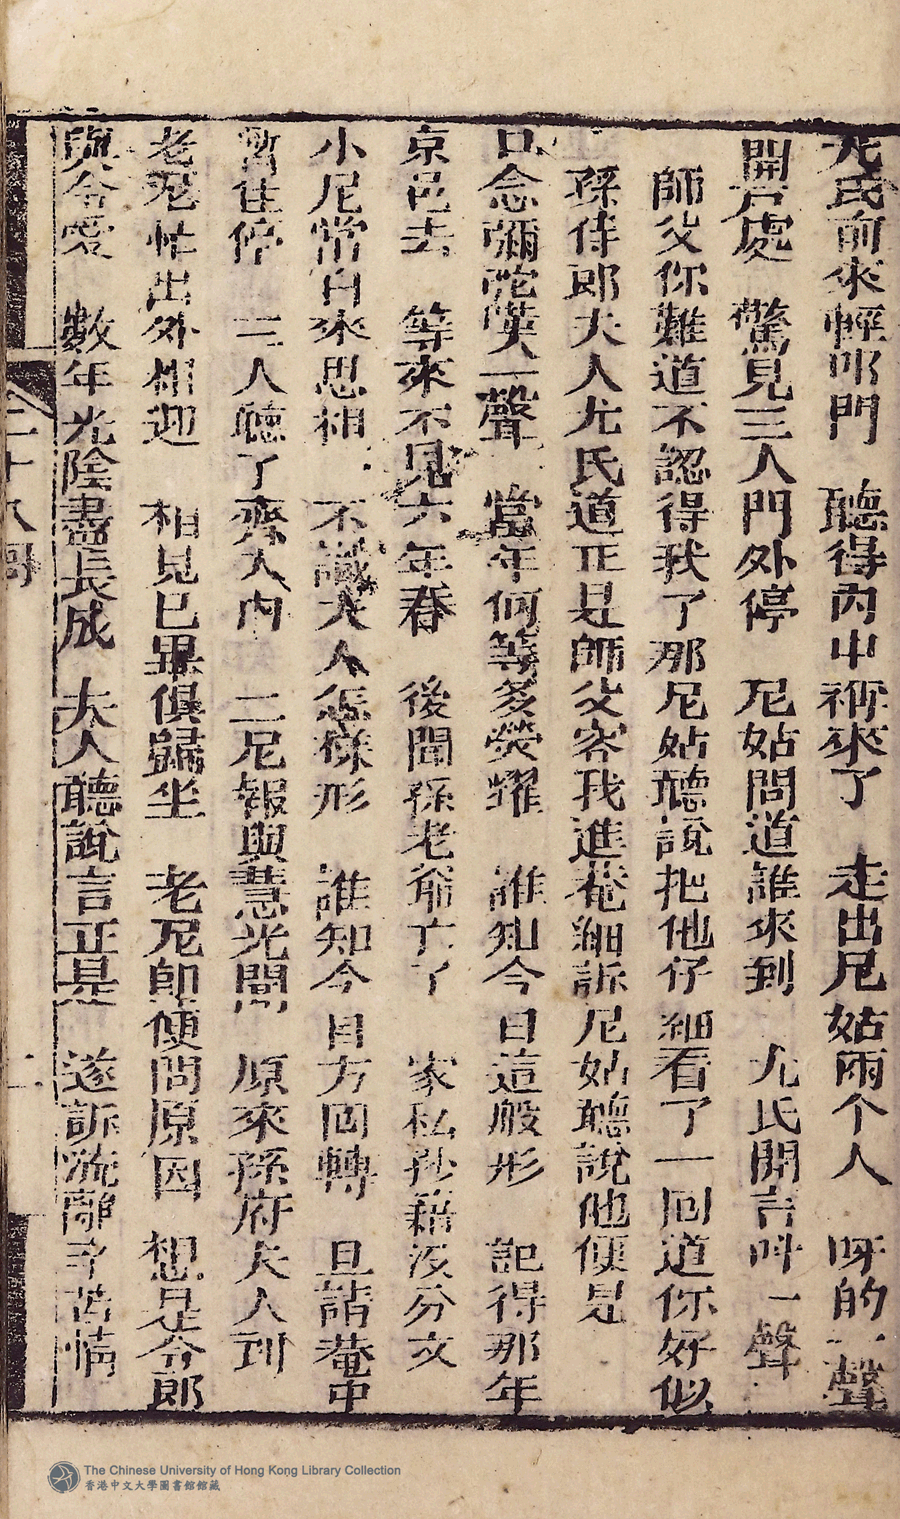 尤氏前來輕叩門　聽得內中祈來了　走出尼姑兩个人　呀的一聲
開戸處　驚見三人門外停　尼姑問道誰來到　尤氏開言叫一聲
師父你難道不認得我了那尼姑聽說把他仔細看了一回道你好似
孫侍郎夫人尤氏道正是師父容我進菴細訴尼姑聽說他便是
口念彌陀嘆一聲　當年何等多熒耀　誰知今日這般形　記得那年
京邑去　等來不見六年春　後聞孫老爺亡了　家私抄籍沒分文
小尼常自來思相　不識夫人怎樣形　誰知今日方囘轉　且請菴中
暫住停　三人聽了齊入內　二尼報與慧光聞　原來孫府夫人到
老尼忙出外相迎　相見已畢俱歸坐　老尼卽便問原因　想是令郎
與令愛　數年光陰盡長成　夫人聽說言正是　遂訴流離辛苦情
二十八囘
二
The Chinese University of Hong Kong Library Collection
香港中文大學圖書館館藏